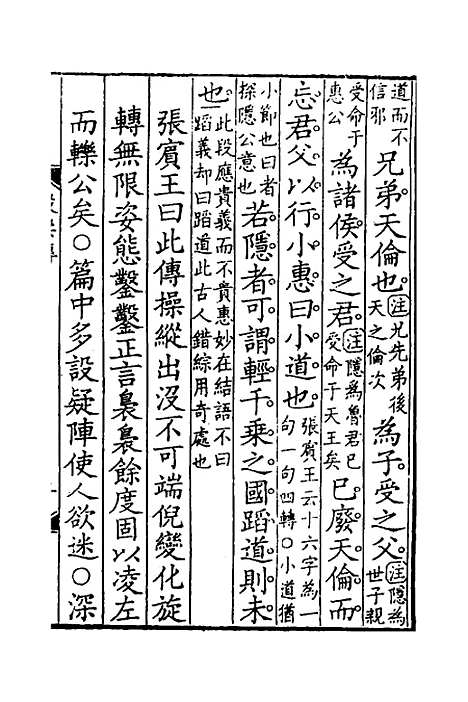 道而不信邪兄弟天倫也。注兄先弟後天之倫次為子受之父。注隱為世子親
受命于惠公為諸侯受之君。注隱為魯君已受命于天王矣已廢天倫而
忘君父以行小惠曰小道也。張賓王云十六字為一句一句四轉○小道猶
小節也曰者探隱公意也若隱者可謂輕千乘之國蹈道則未
也。此段應貴義而不貴惠妙在結語不曰蹈義却曰蹈道此古人錯綜用奇處也
張賓王曰此傳操縱出沒不可端倪變化旋
轉無限姿態鑿鑿正言裊裊餘度固以凌左
而轢公矣○篇中多設疑陣使人欲迷○深